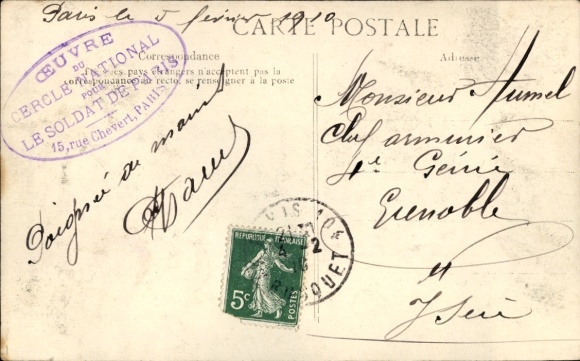 Paris le 5 février 1910
CARTE POSTALE
Correspondance
Tous les pays étrangers n'acceptent pas la
correspondance au recto, se renseigner à la poste
Adresse
ŒUVRE
DU
CERCLE NATIONAL
POUR
LE SOLDAT DE PARIS
15, rue Chevert, PARIS
Poignée de main
Monsieur Humel
Chef armurier
4e Génie
Grenoble
Isère
REPUBLIQUE FRANÇAISE
5c
POSTES
PARIS
BOSQUET